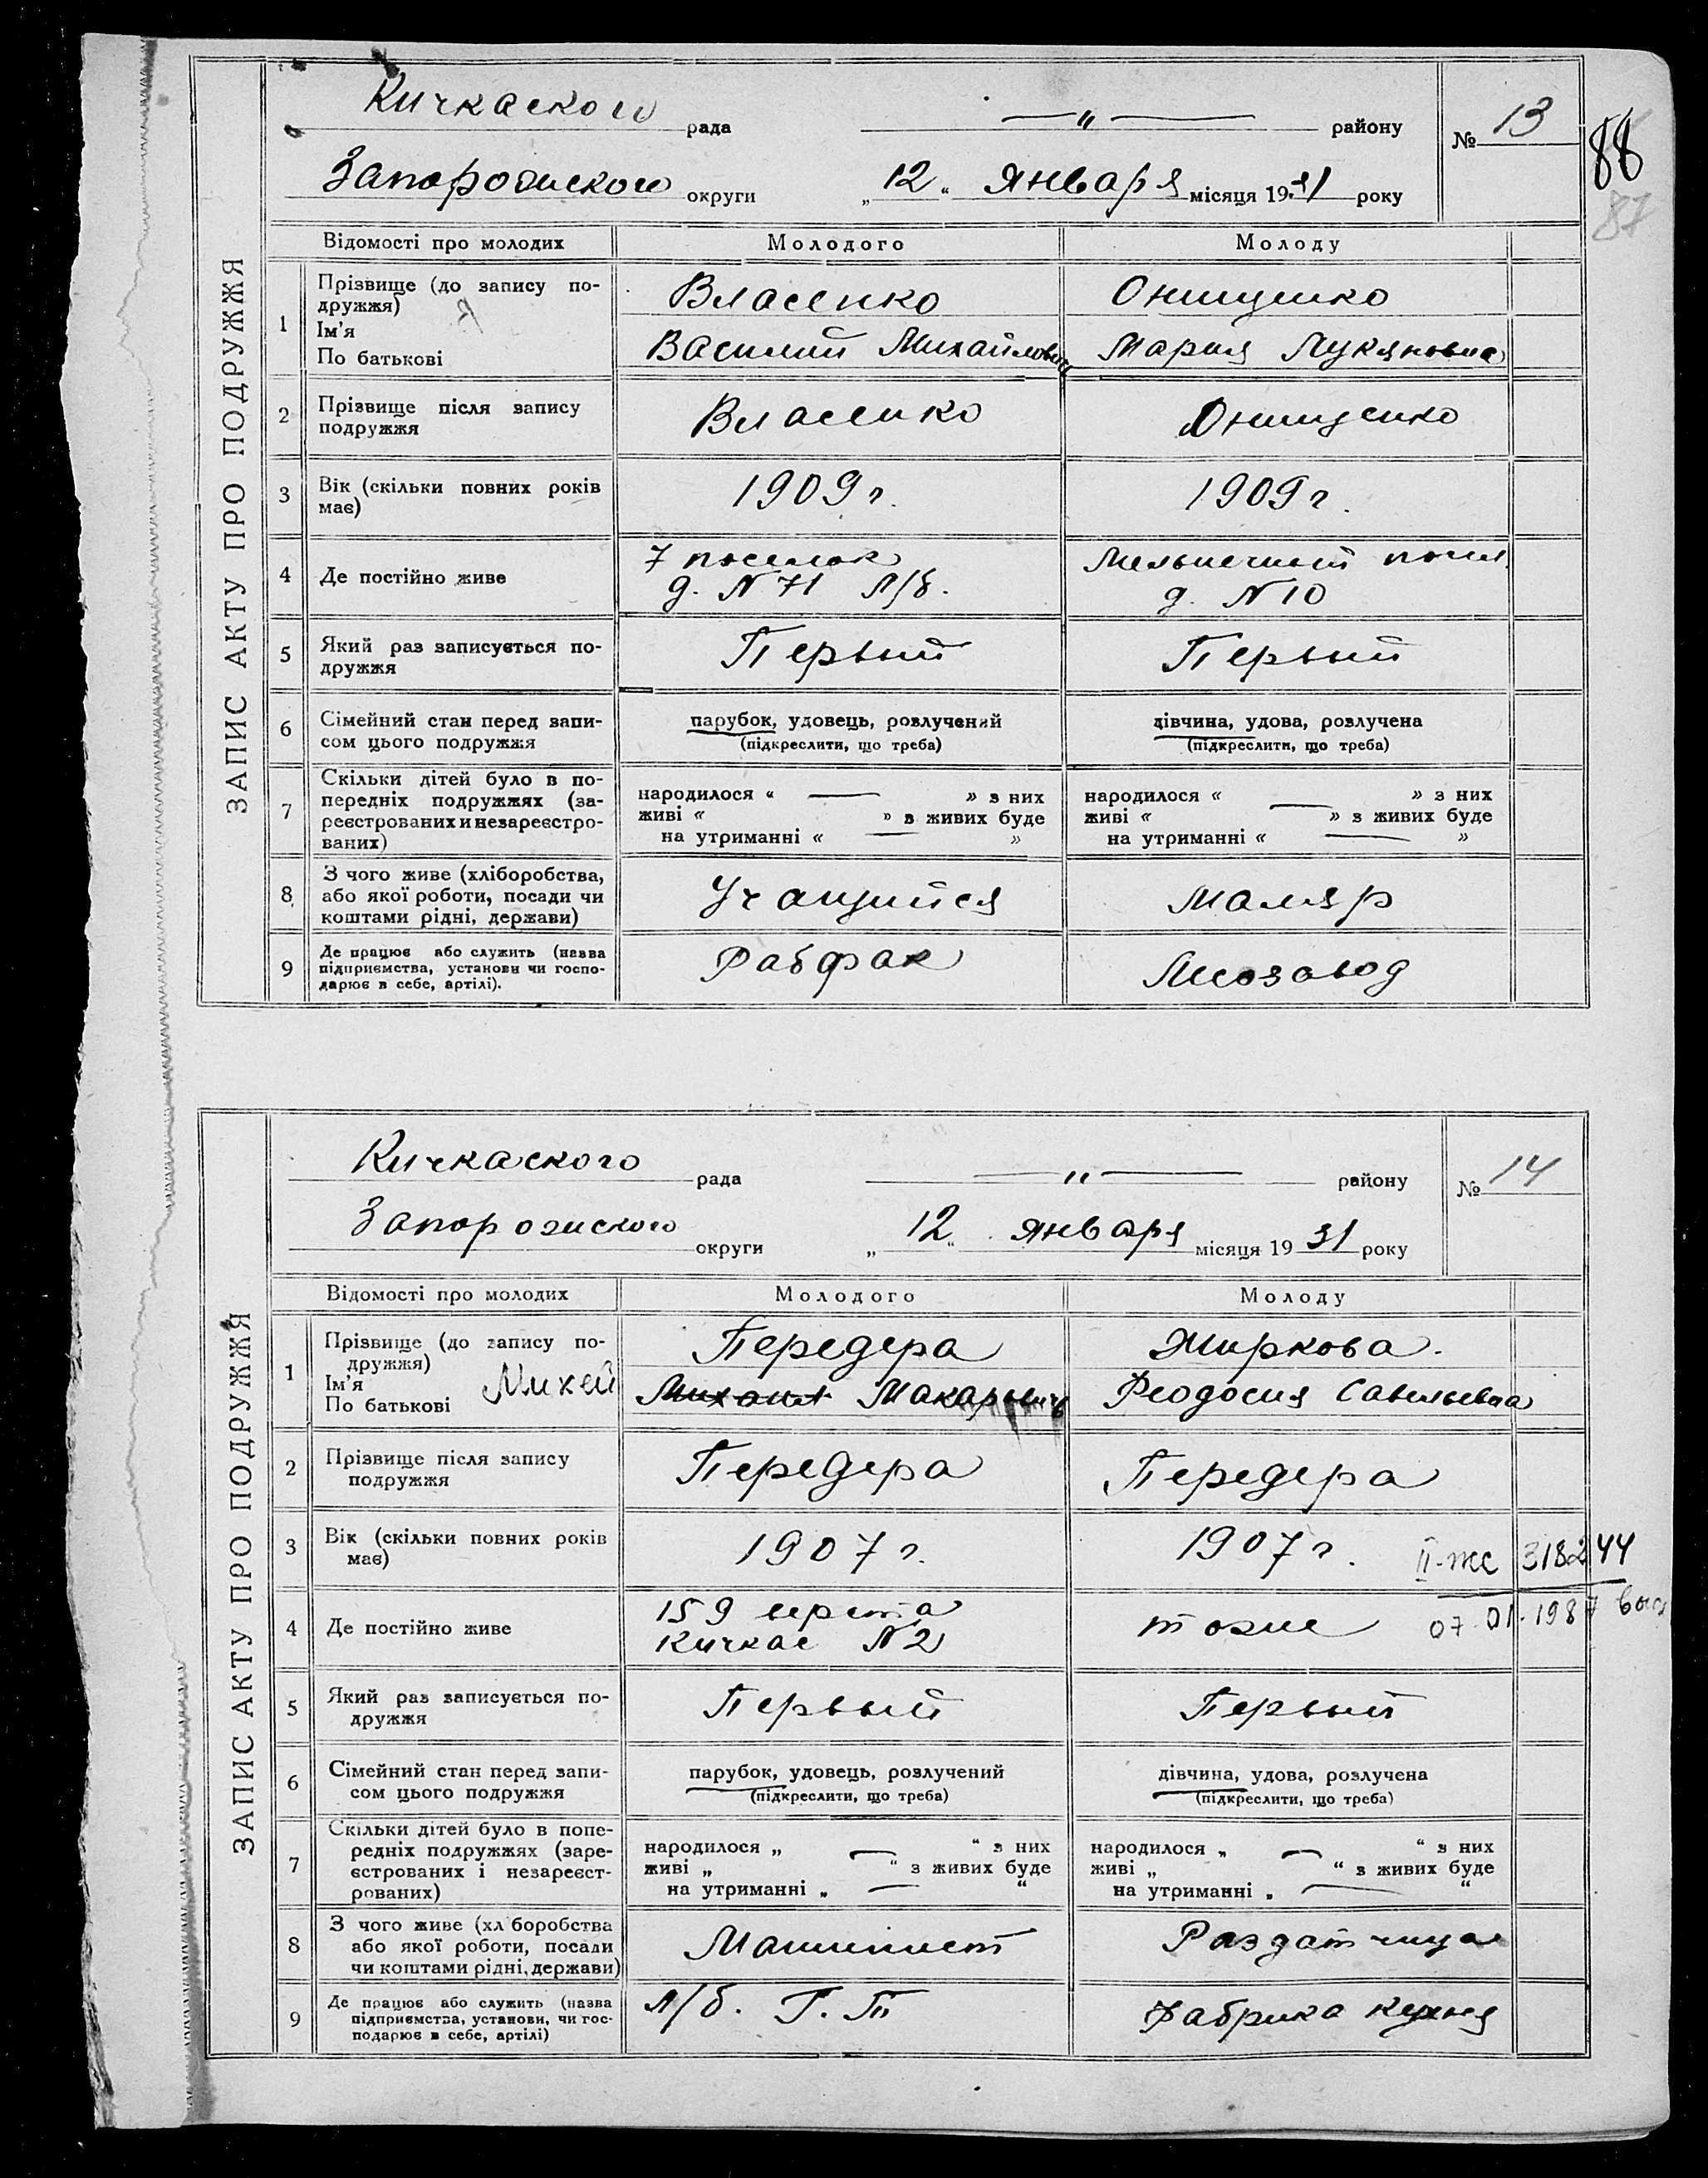 ЗАПИС АКТУ ПРО ПОДРУЖЖЯ
Кичкаского рада — " — району
№ 13
88
87
Запорожского округи „12“ Января місяця 1931 року
Відомості про молодих Молодого Молоду
1 Прізвище (до запису по-
дружжя)
Ім'я
По батькові
Власенко
Василий Михайлович
Онищенко
Мария Лукяновна
2 Прізвище після запису
подружжя
Власенко
Онищенко
3 Вік (скільки повних років
має)
1909 г.
1909 г.
4 Де постійно живе
7 поселок
д. N 71 Л/б.
Мельничный посел.
д. N 10
5 Який раз записується по-
дружжя
Первый
Первый
6 Сімейний стан перед запи-
сом цього подружжя
парубок, удовець, розлучений
(підкреслити, що треба)
дівчина, удова, розлучена
(підкреслити, що треба)
7 Скільки дітей було в по-
передніх подружжях (за-
реєстрованих и незареєстро-
ваних)
народилося « — » з них
живі « » з живих буде
на утриманні « — »
народилося « — » з них
живі « » з живих буде
на утриманні « — »
8 З чого живе (хліборобства,
або якої роботи, посади чи
коштами рідні, держави)
Учащийся
Маляр
9 Де працює або служить (назва
підприємства, установи чи госпо-
дарює в себе, артілі).
Рабфак
Лесозавод
ЗАПИС АКТУ ПРО ПОДРУЖЖЯ
Кичкаского рада — " — району
№ 14
Запорожского округи „12“ Января місяця 1931 року
Відомості про молодих Молодого Молоду
1 Прізвище (до запису по-
дружжя)
Ім'я
По батькові
Михей
Передера
Михаил Макарович
Жиркова.
Феодосия Савельевна
2 Прізвище після запису
подружжя
Передера
Передера
3 Вік (скільки повних років
має)
1907 г.
1907 г.
II-ЖС 318244
07.01.1987
4 Де постійно живе
159 верста
Кичкас N 2
тоже
5 Який раз записується по-
дружжя
Первый
Первый
6 Сімейний стан перед запи-
сом цього подружжя
парубок, удовець, розлучений
(підкреслити, що треба)
дівчина, удова, розлучена
(підкреслити, що треба)
7 Скільки дітей було в попе-
редніх подружжях (заре-
єстрованих і незареєст-
рованих)
народилося „ — “ з них
живі „ “ з живих буде
на утриманні „ — “
народилося „ — “ з них
живі „ “ з живих буде
на утриманні „ — “
8 З чого живе (хл боробства
або якої роботи, посади
чи коштами рідні, держави)
Машинист
Раздатчица
9 Де працює або служить (назва
підприємства, установи, чи гос-
подарює в себе, артілі)
л/б. Г. П
Фабрика Кухня